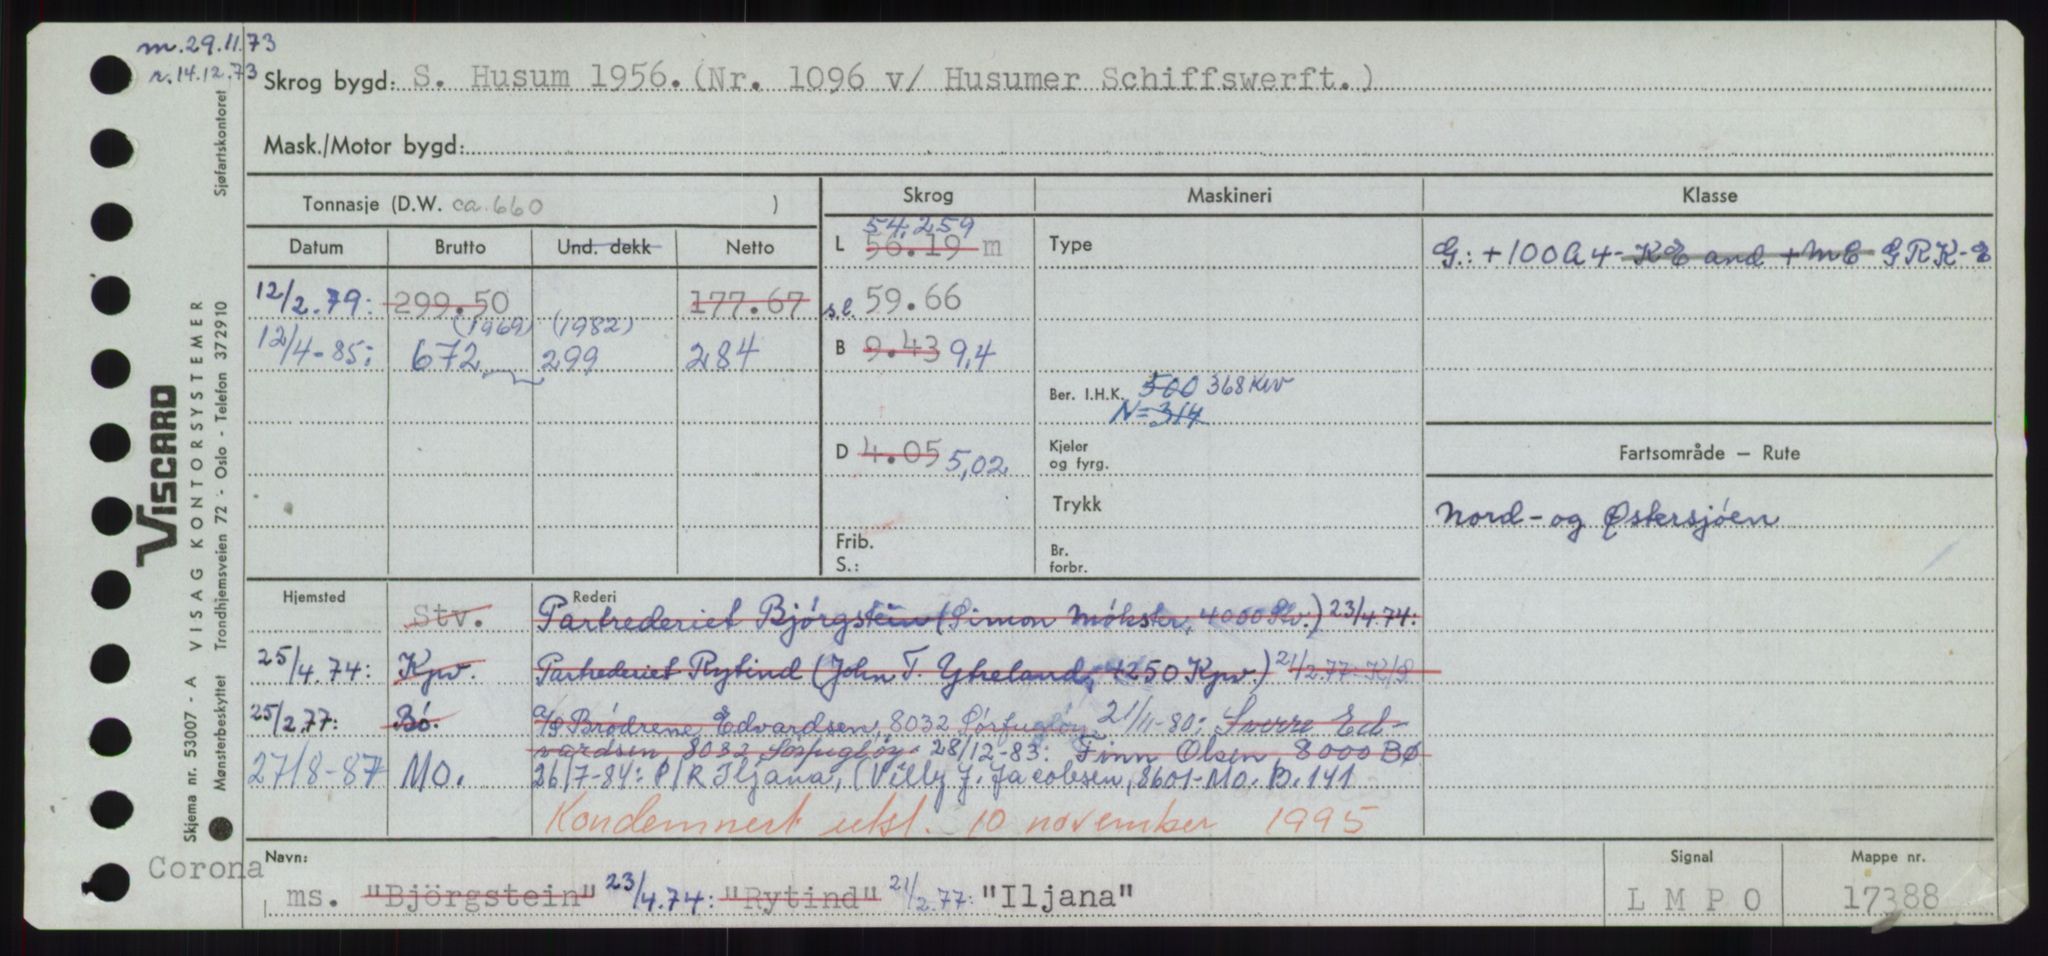 m.29.11.73
r.14.12.73
Skrog bygd: S. Husum 1956. (Nr. 1096 v/ Husumer Schiffswerft.)
Mask./Motor bygd:
Tonnasje (D.W. ca.660 )
Datum Brutto Und. dekk Netto
12/2.79: 299.50 177.67
(1969) (1982)
12/4-85: 672 299 284
Skrog
54.259
L 56.19 m
s.l. 59.66
B 9.43 9,4
D 4.05 5,02
Frib.
S.:
Maskineri
Type
Ber. I.H.K. 500 368 KW
N=314
Kjeler
og fyrg.
Trykk
Br.
forbr.
Klasse
G.: +100A4- KE and +MC GRK-E
Fartsområde — Rute
Nord- og Østersjøen
Hjemsted Rederi
Stv. Partrederiet Bjørgstein (Simon Møkster, 4000 Stv.) 23/4.74:
25/4.74: Kpv. Partrederiet Rytind (John T. Ytreland, 4250 Kpv.) 21/2.77: K/S
25/2.77: Bö. A/S Brødrene Edvardsen, 8032 Sørfugløy 21/11-80: Sverre Ed-
vardsen 8032 Sørfugløy 28/12-83: Finn Olsen 8000 BØ
27/8-87 MO. 26/7-84: P/R Iljana, (Villy J. Jacobsen, 8601-Mo. B. 141
Kondemnert utsl. 10 november 1995
Corona
Navn:
ms. "Björgstein" 23/4.74: "Rytind" 21/2.77: "Iljana"
Signal
L M P O
Mappe nr.
17388
VISCARD
Skjema nr. 53007 - A VISAG KONTORSYSTEMER
Mønsterbeskyttet Trondhjemsveien 72 - Oslo - Telefon 372910 Sjøfartskontoret